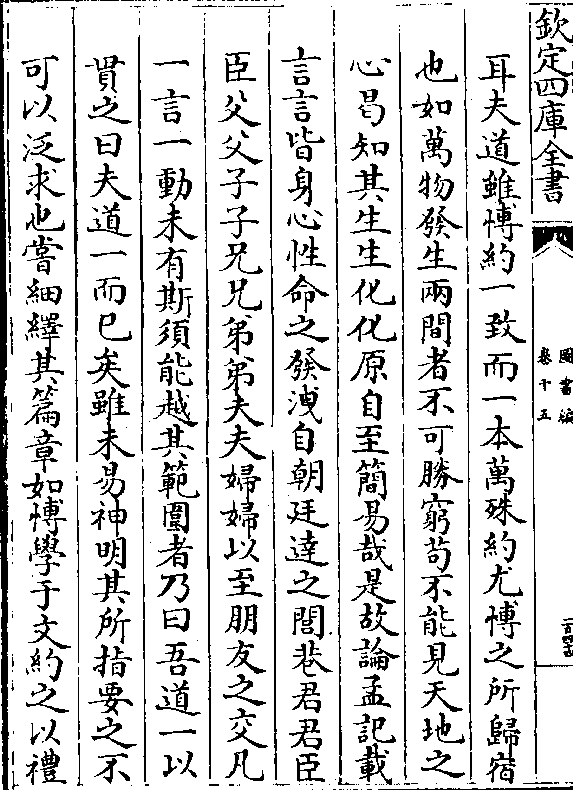 欽定四庫全書
圖書編
卷十五
耳夫道雖博約一致而一本萬殊約尤博之所歸宿
也如萬物發生兩間者不可勝窮茍不能見天地之
心曷知其生生化化原自至簡易哉是故論孟記載
言言皆身心性命之發洩自朝廷達之閭巷君君臣
臣父父子子兄兄弟弟夫夫婦婦以至朋友之交凡
一言一動未有斯須能越其範圍者乃曰吾道一以
貫之曰夫道一而已矣雖未易神明其所指要之不
可以泛求也嘗細繹其篇章如博學于文約之以禮